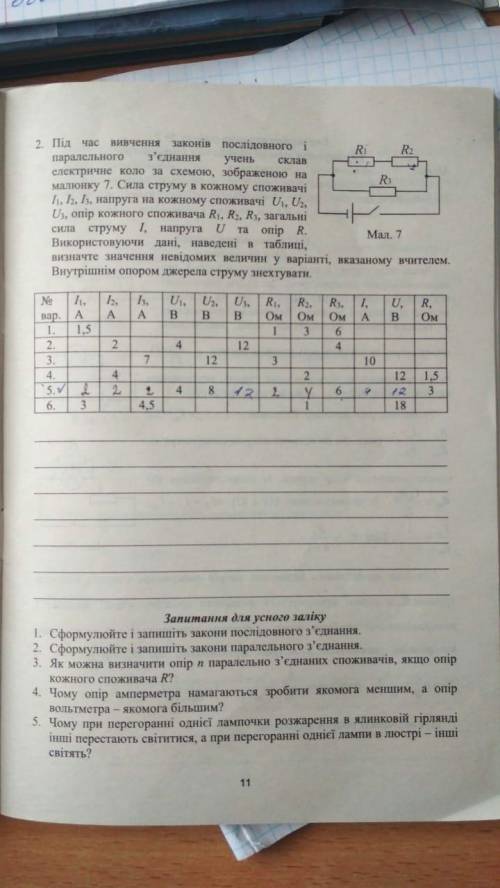 2. Під час вивчення законів послідовного і
паралельного з’єднання учень склав
електричне коло за схемою, зображеною на
малюнку 7. Сила струму в кожному споживачі
I₁, I₂, I₃, напруга на кожному споживачі U₁, U₂,
U₃, опір кожного споживача R₁, R₂, R₃, загальні
сила струму I, напруга U та опір R.
Використовуючи дані, наведені в таблиці,
визначте значення невідомих величин у варіанті, вказаному вчителем.
Внутрішнім опором джерела струму знехтувати.
R₁ R₂
R₃
Мал. 7
№ I₁, I₂, I₃, U₁, U₂, U₃, R₁, R₂, R₃, I, U, R,
вар. А А А В В В Ом Ом Ом А В Ом
1. 1,5 1 3 6
2. 2 4 12 4
3. 7 12 3 10
4. 4 2 12 1,5
5. 2 2 2 4 8 12 2 4 6 12 3
6. 3 4,5 1 18
Запитання для усного заліку
1. Сформулюйте і запишіть закони послідовного з’єднання.
2. Сформулюйте і запишіть закони паралельного з’єднання.
3. Як можна визначити опір n паралельно з’єднаних споживачів, якщо опір
кожного споживача R?
4. Чому опір амперметра намагаються зробити якомога меншим, а опір
вольтметра – якомога більшим?
5. Чому при перегоранні однієї лампочки розжарення в ялинковій гірлянді
інші перестають світитися, а при перегоранні однієї лампи в люстрі – інші
світять?
11